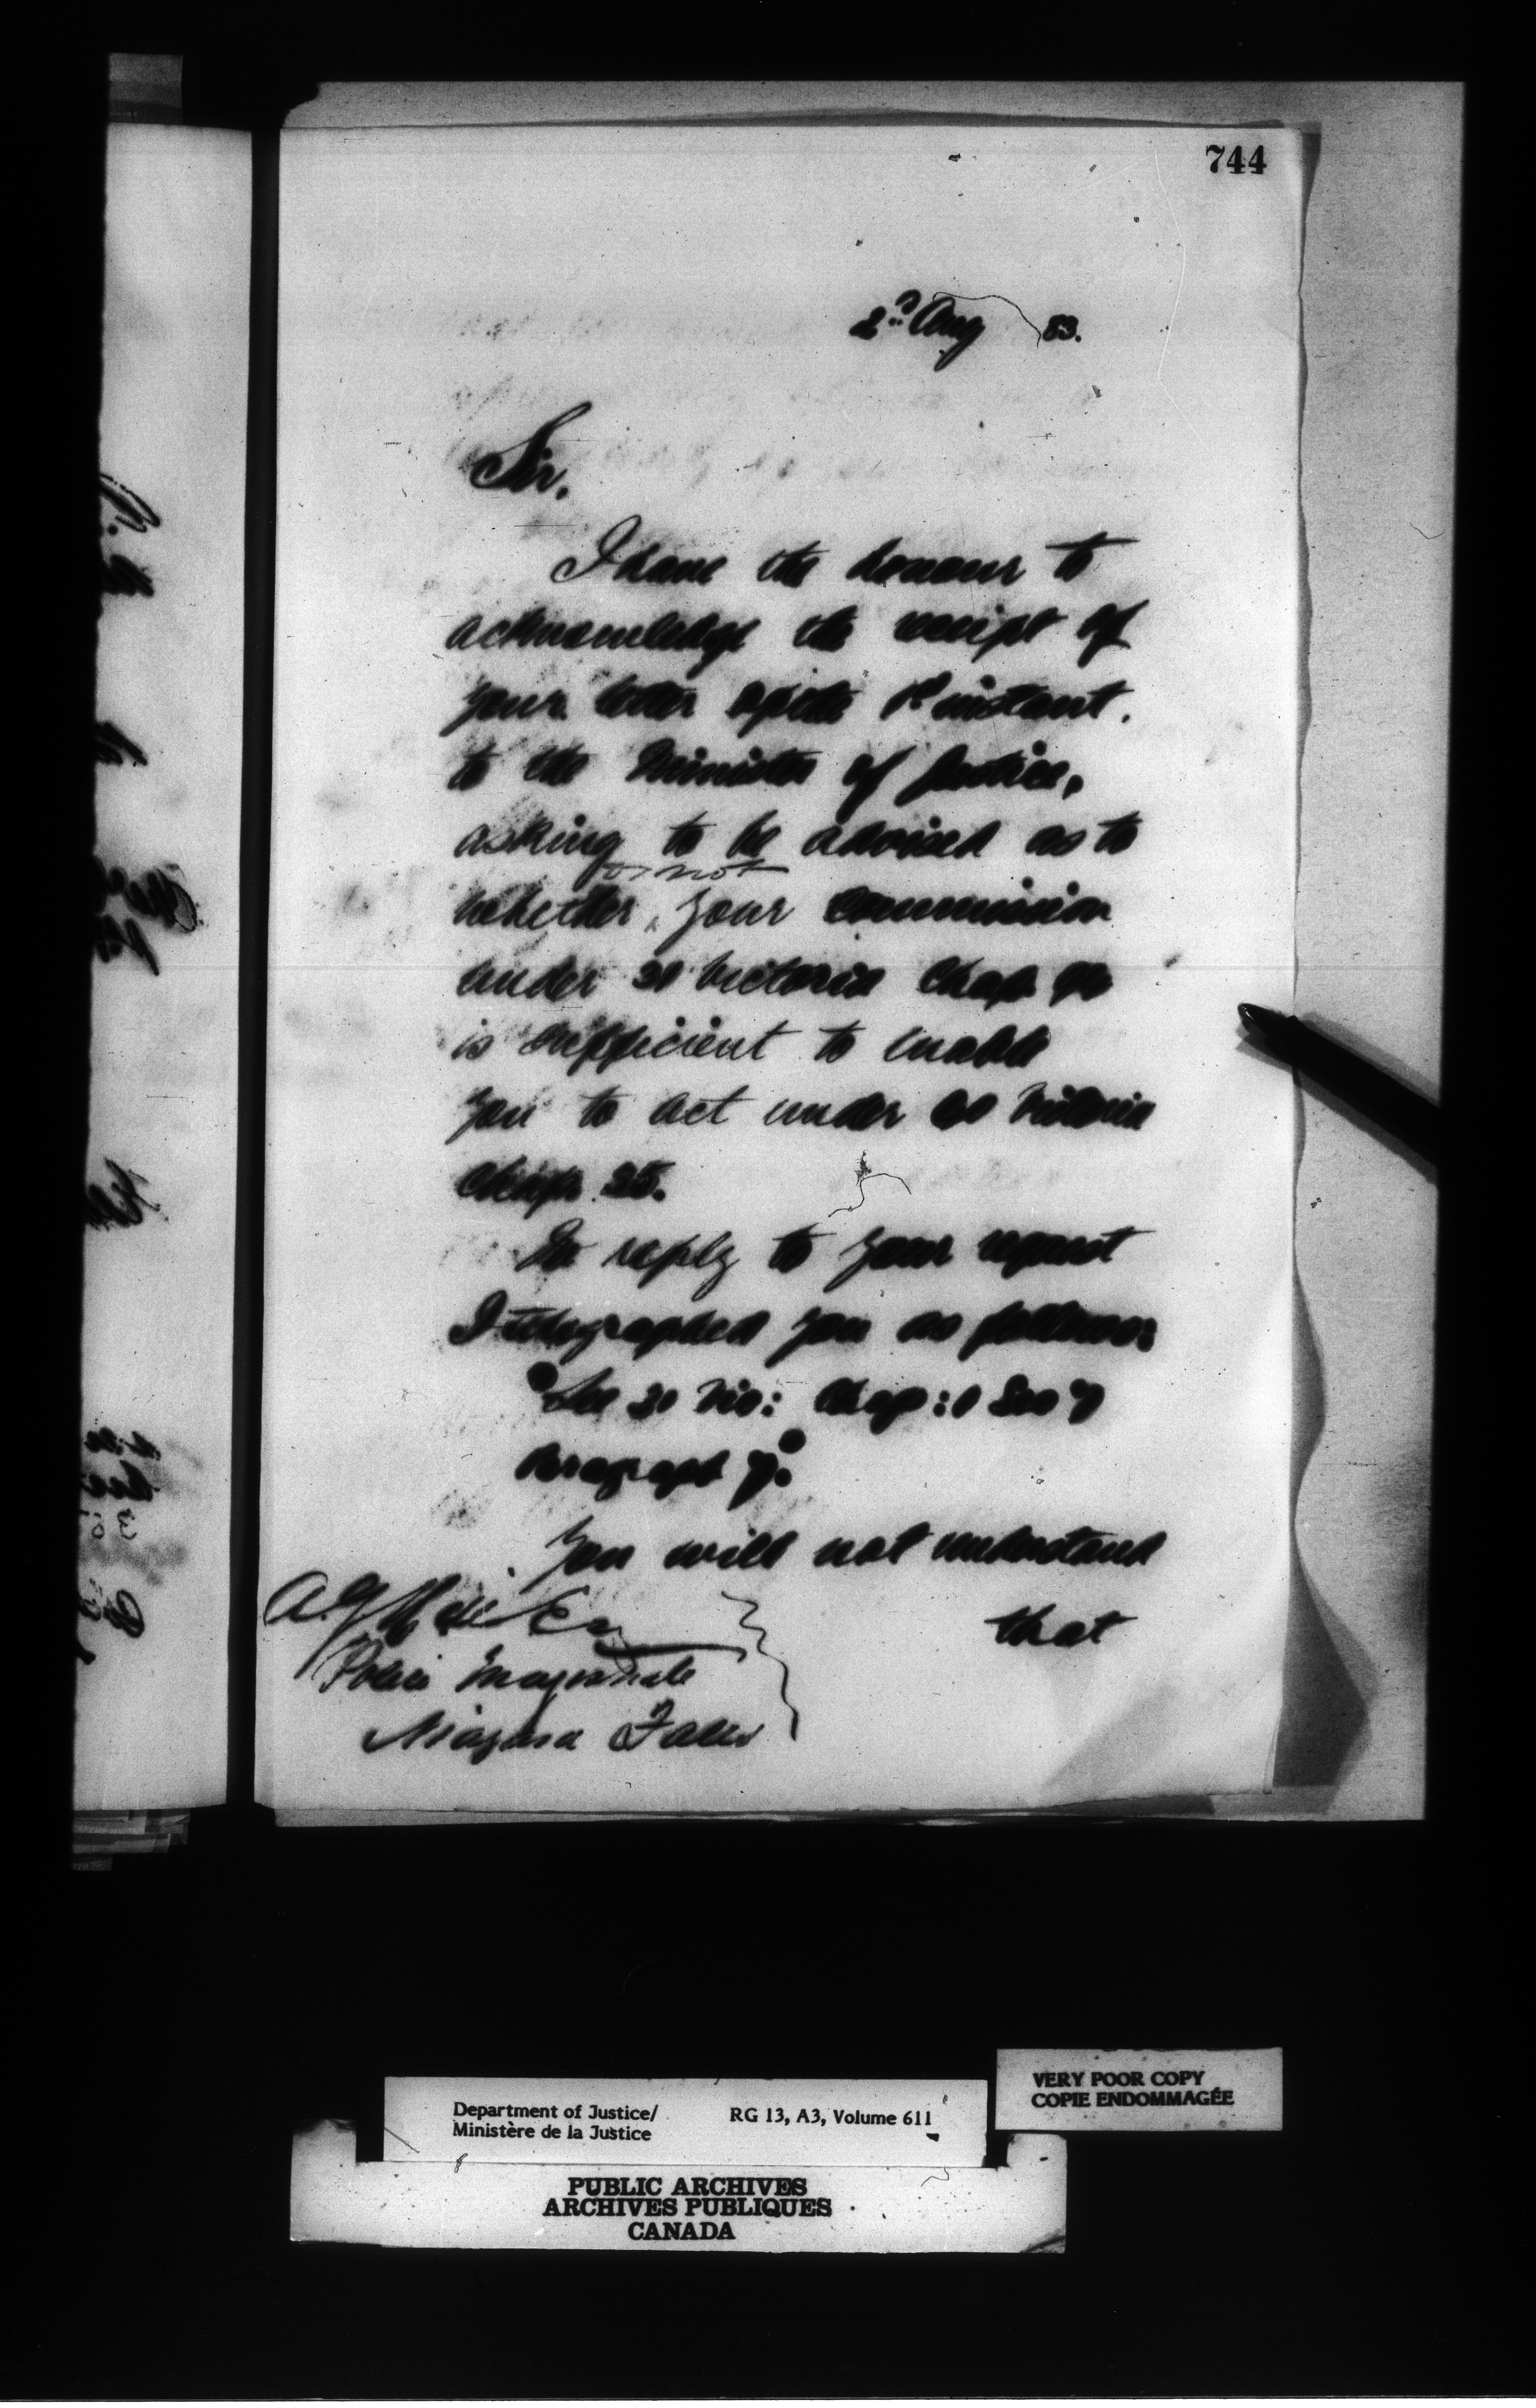 744
2nd Aug 83.
Sir,
I have the honour to
acknowledge the receipt of
your letter of the 1st instant.
to the Minister of Justice,
asking to be advised as to
or not
whether your commission
under 31 Victoria Chap
is sufficient to enable
you to act under Victoria
Chap. 25.
In reply to your request
I telegraphed you as follows:
"See 31 Vic: Chap: 1 Sec 7
Paragraph 7."
You will not understand
that
A.G. Hill Esq
Police Magistrate
Niagara Falls
VERY POOR COPY
COPIE ENDOMMAGÉE
Department of Justice/ RG 13, A3, Volume 611
Ministère de la Justice
PUBLIC ARCHIVES
ARCHIVES PUBLIQUES
CANADA